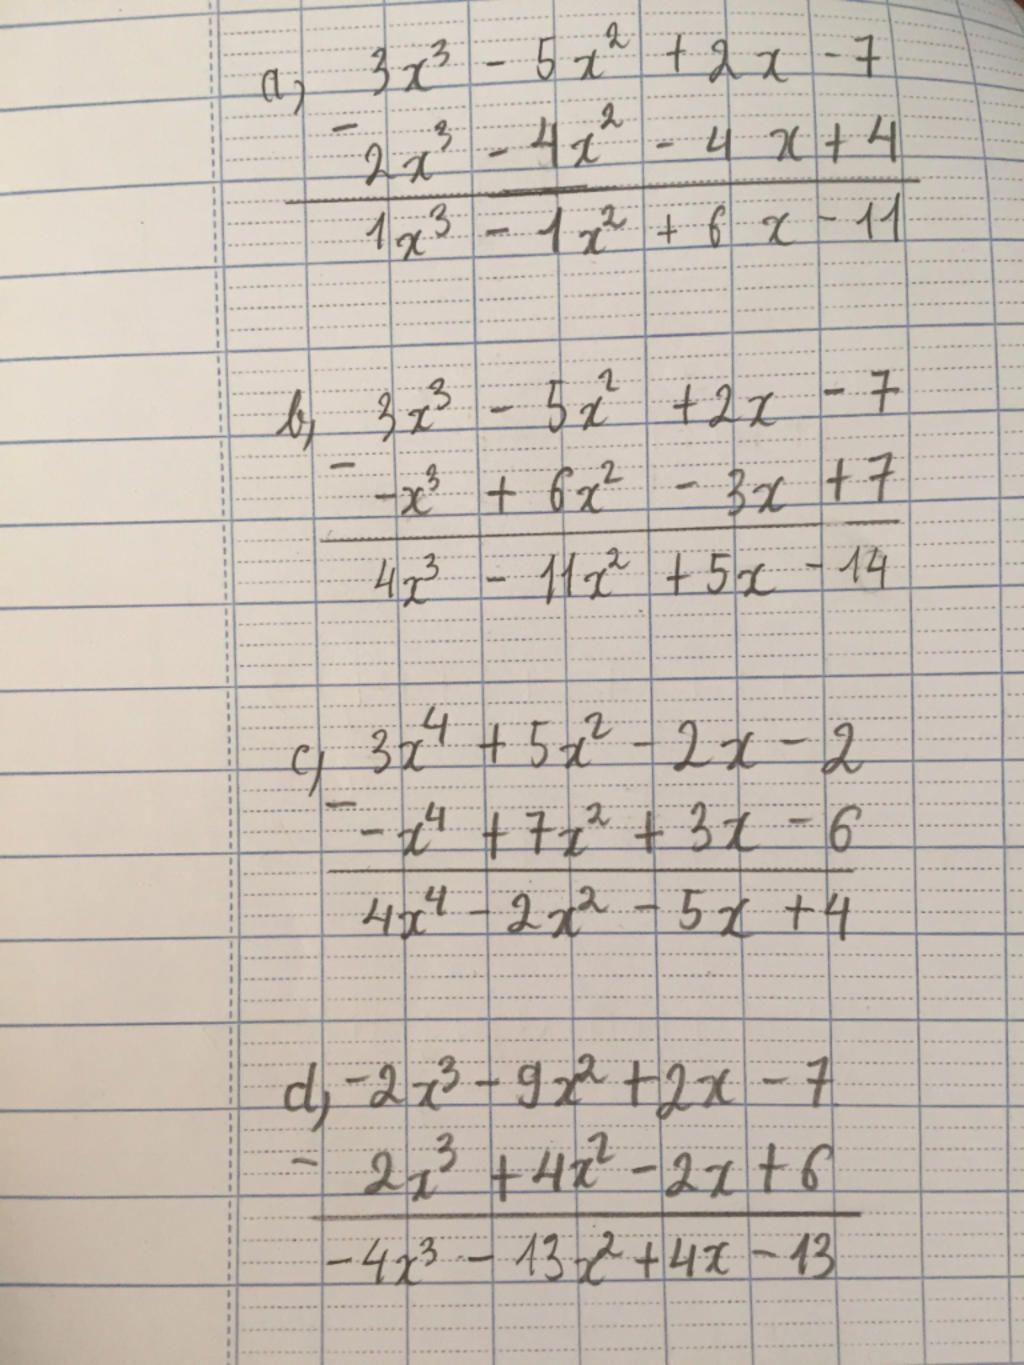 a, 3x³ - 5x² + 2x - 7
-
2x³ - 4x² - 4 x + 4
1x³ - 1x² + 6 x - 11
b, 3x³ - 5x² + 2x - 7
-
-x³ + 6x² - 3x + 7
4x³ - 11x² + 5x - 14
c, 3x⁴ + 5x² - 2x - 2
-
-x⁴ + 7x² + 3x - 6
4x⁴ - 2x² - 5x + 4
d, -2x³ - 9x² + 2x - 7
-
2x³ + 4x² - 2x + 6
-4x³ - 13x² + 4x - 13